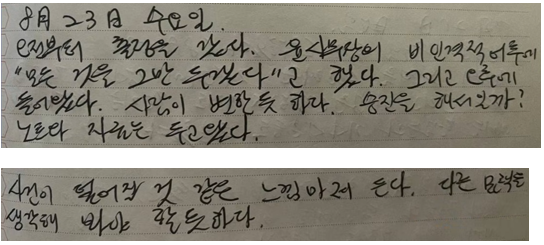 8月 23日 수요일.
오전부터 출장을 갔다. 윤사무장의 비인격적 어투에
"모든 것을 그만 두겠다"고 했다. 그리고 오후에
들어왔다. 사람이 변한듯 하다. 승진을 해서일까?
노트와 자료는 두고 왔다.
사건이 벌어질 것 같은 느낌마저 든다. 다른 문책을
생각해 봐야 할듯하다.